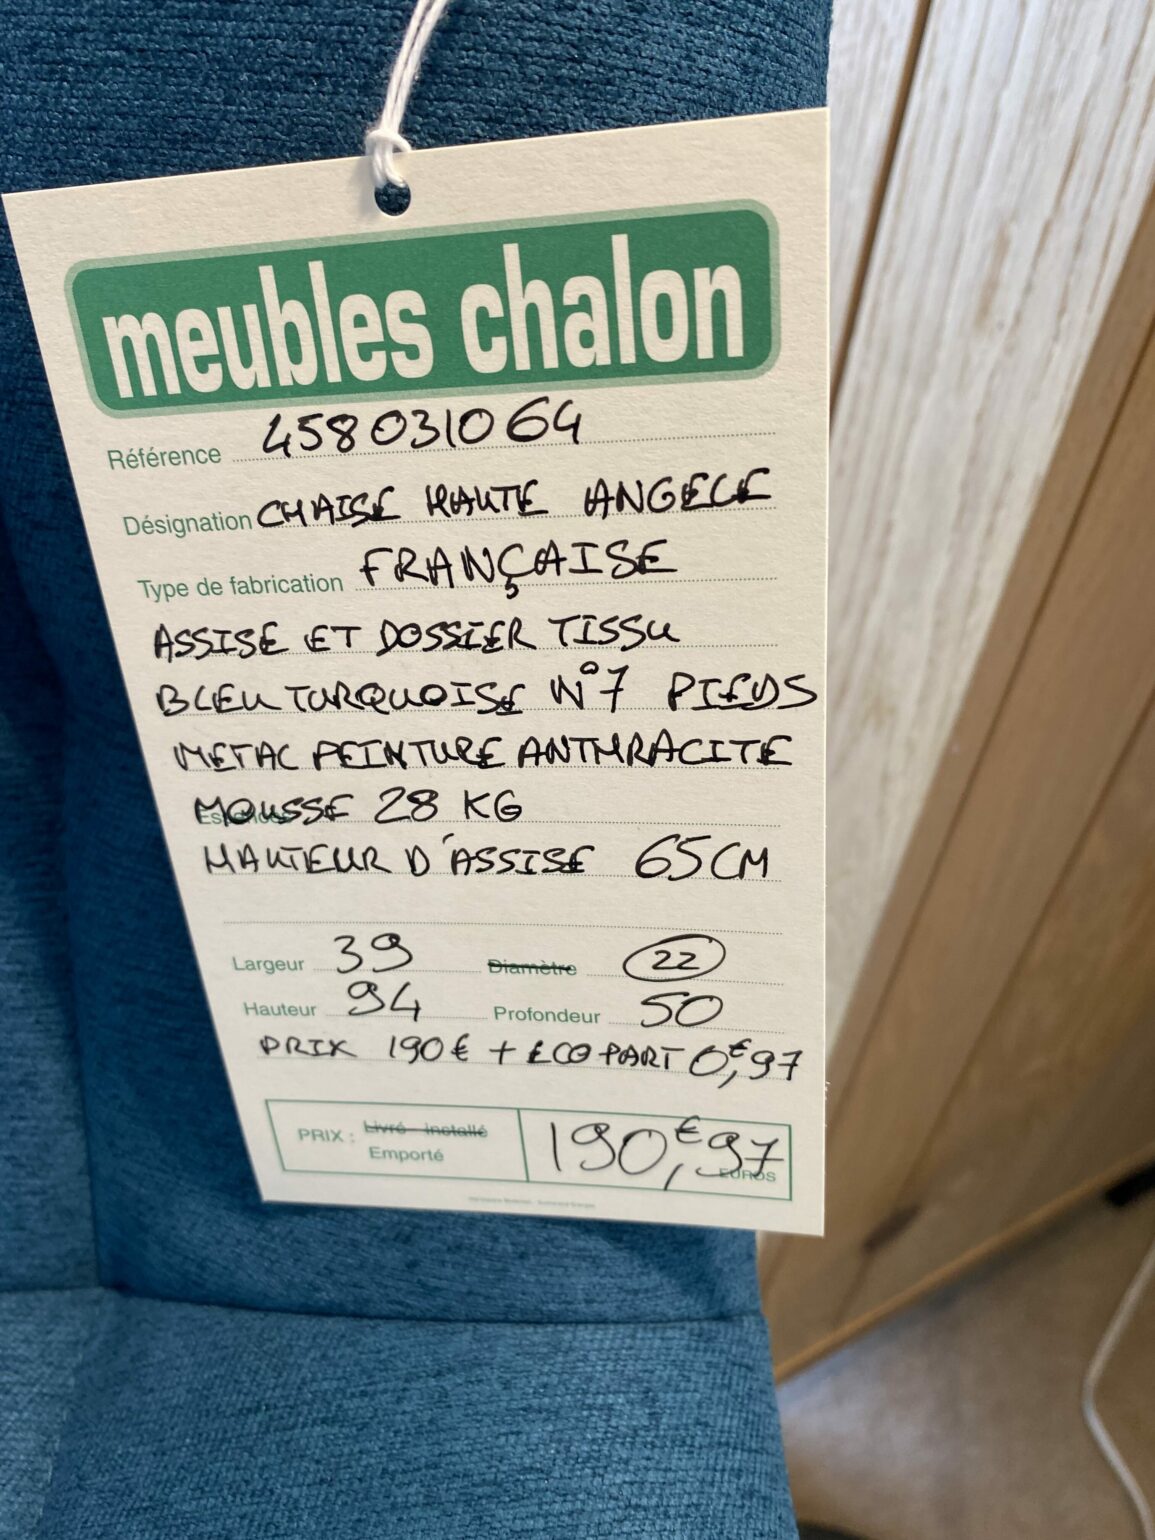 meubles chalon
Référence 458031064
Désignation CHAISE HAUTE ANGELE
Type de fabrication FRANÇAISE
ASSISE ET DOSSIER TISSU
BLEU TURQUOISE N°7 PIEDS
METAL PEINTURE ANTHRACITE
MOUSSE 28 KG
HAUTEUR D'ASSISE 65CM
Largeur 39 Diamètre 22
Hauteur 94 Profondeur 50
PRIX 190€ + ECO PART 0,€97
PRIX : Livré - installé
Emporté
190,€97
EUROS